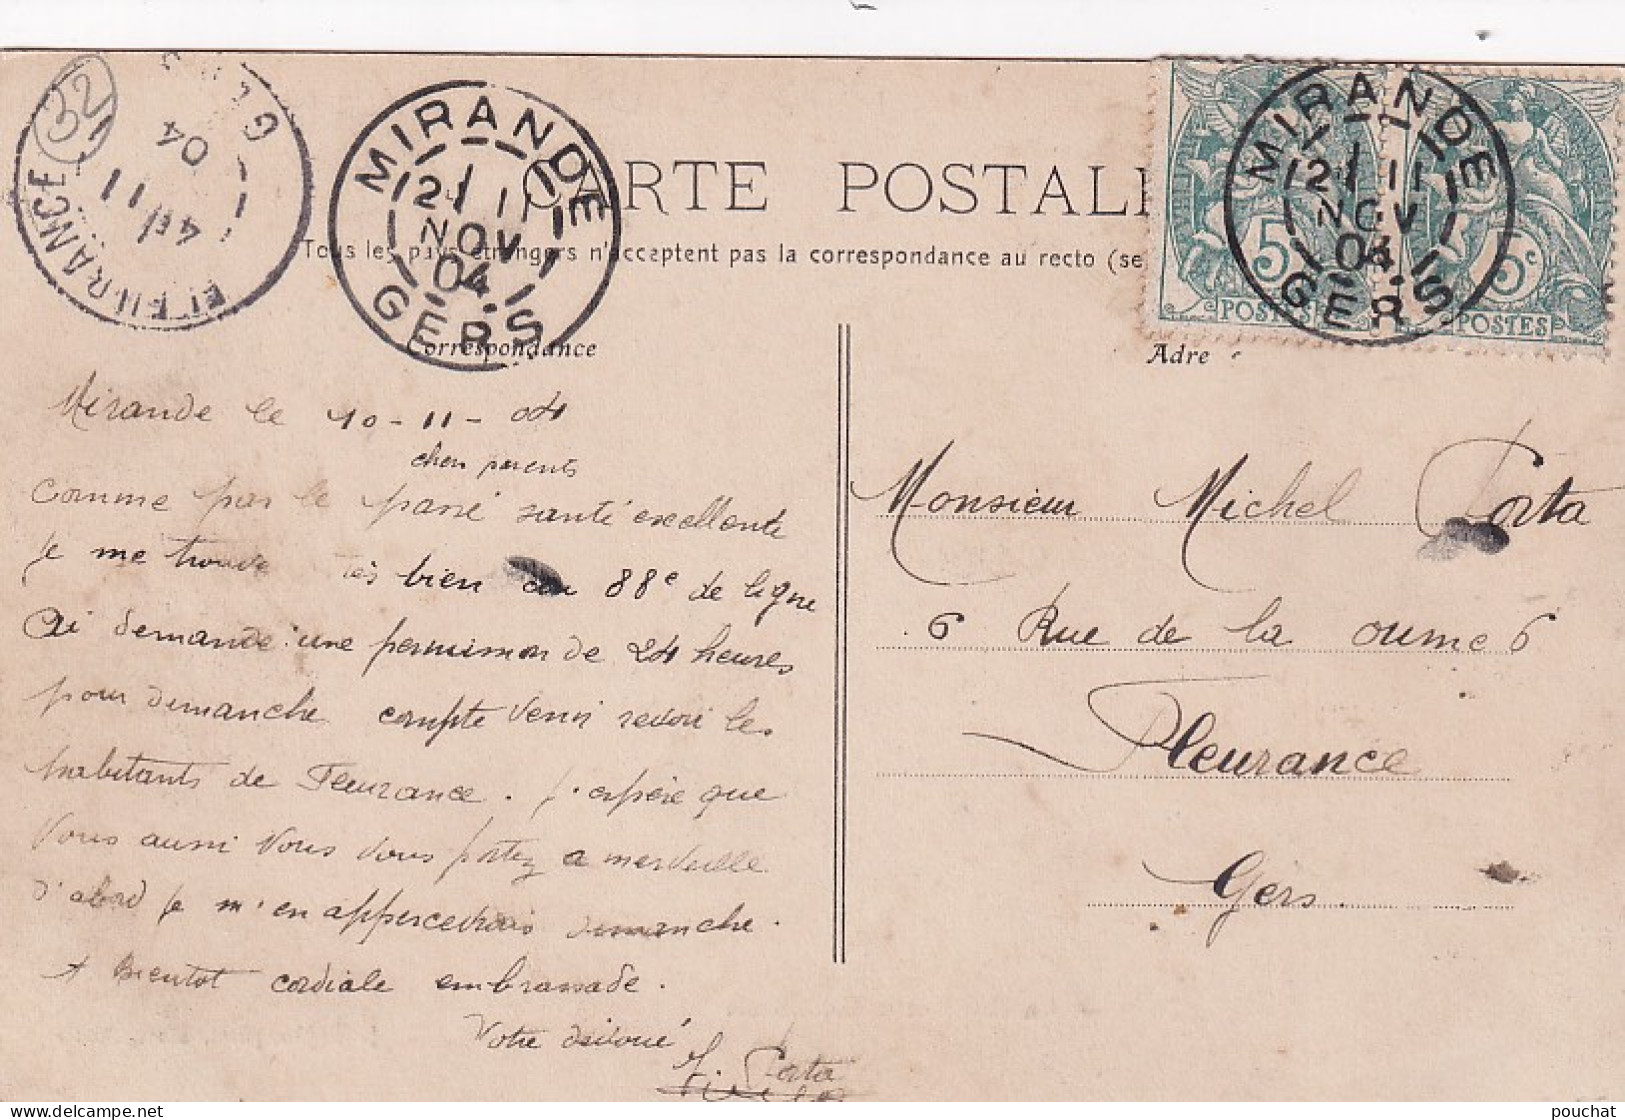 32
FLEURANCE
GERS
4E/11
04
MIRANDE
12/ 11
NOV
04
GERS
CARTE POSTAL
Tous les pays étrangers n'acceptent pas la correspondance au recto (se
MIRANDE
12/ 11
NOV
04
GERS
5
POSTES
5c
POSTES
Correspondance
Adre
Mirande le 10-11-04
chers parents
comme par le passé santé excellente
je me trouve très bien au 88e de ligne
Ai demandé une permission de 24 heures
pour dimanche compte venir revoir les
habitants de Fleurance. J'espère que
Vous aussi Vous Vous portez a merveille
d'abord je m'en appercevrais dimanche.
A Bientot cordiale embrassade.
Votre dévoué
Porta
Monsieur Michel Porta
6 Rue de la oume 6
Fleurance
Gers.
pouchat